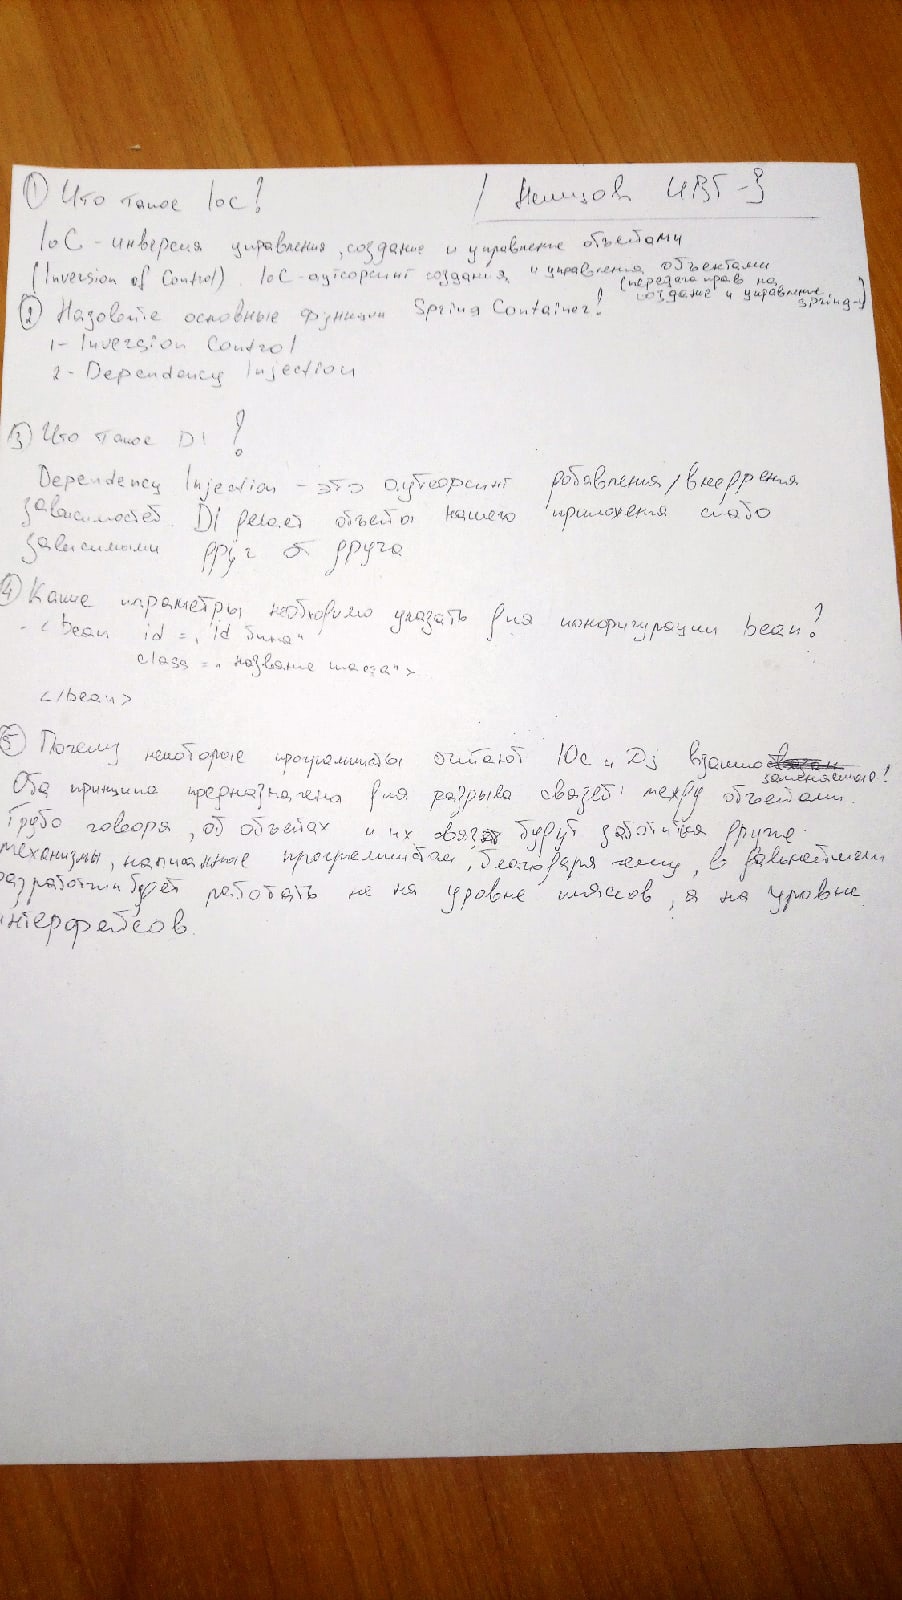 ① Что такое IoC? / Немцов ИВТ-3
IoC - инверсия управления, создание и управление объектами
(Inversion of Control). IoC-аутсорсинг создания и управления объектами
(передача прав на
создание и управление
Spring-у)
② Назовите основные функции Spring Container?
1- Inversion Control
2- Dependency Injection
③ Что такое DI?
Dependency Injection - это аутсорсинг добавления/внедрения
зависимостей. DI делает объекты нашего приложения слабо
зависимыми друг от друга
④ Какие параметры необходимо указать для конфигурации bean?
- <bean id = „id бина"
class = „название класса">
</bean>
⑤ Почему некоторые программисты считают IOc и Di взаимо
заменяемые?
Оба принципа предназначены для разрыва связей между объектами.
Грубо говоря, об объектах и их связях будут заботиться другие
механизмы, написанные программистом, благодаря чему, в дальнейшем
разработчик будет работать не на уровне классов, а на уровне
интерфейсов.